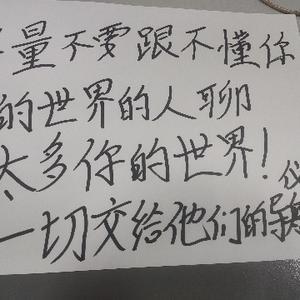 量不要跟不懂你
的世界的人聊
太多你的世界!
一切交给他们的导